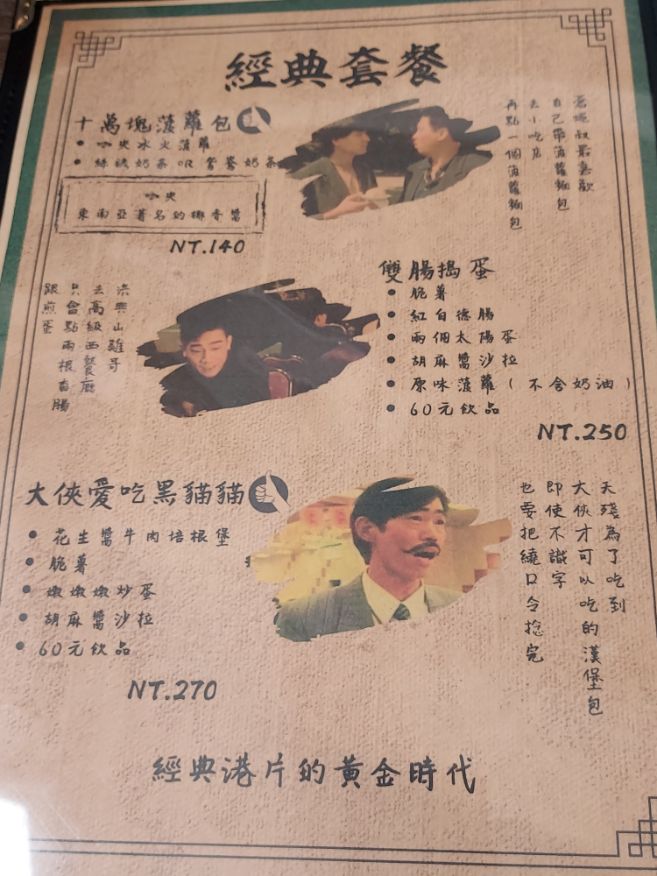 經典套餐
十萬塊菠蘿包
咖央冰火菠蘿
絲襪奶茶OR鴛鴦奶茶
咖央
東南亞著名的椰香醬
NT.140
蒼蠅叔最喜歡
自己帶菠蘿麵包
去小吃店
再點一個菠蘿麵包
雙腸搗蛋
脆薯
紅白德腸
兩個太陽蛋
胡麻醬沙拉
原味菠蘿(不含奶油)
60元飲品
NT.250
洪興山雞哥
去高級西餐廳
只會點兩根香腸
跟煎蛋
大俠愛吃黑貓貓
花生醬牛肉培根堡
脆薯
嫩嫩嫩炒蛋
胡麻醬沙拉
60元飲品
NT.270
天殘為了吃到
大俠才可以吃的漢堡包
即使不識字
也要把繞口令捻完
經典港片的黃金時代